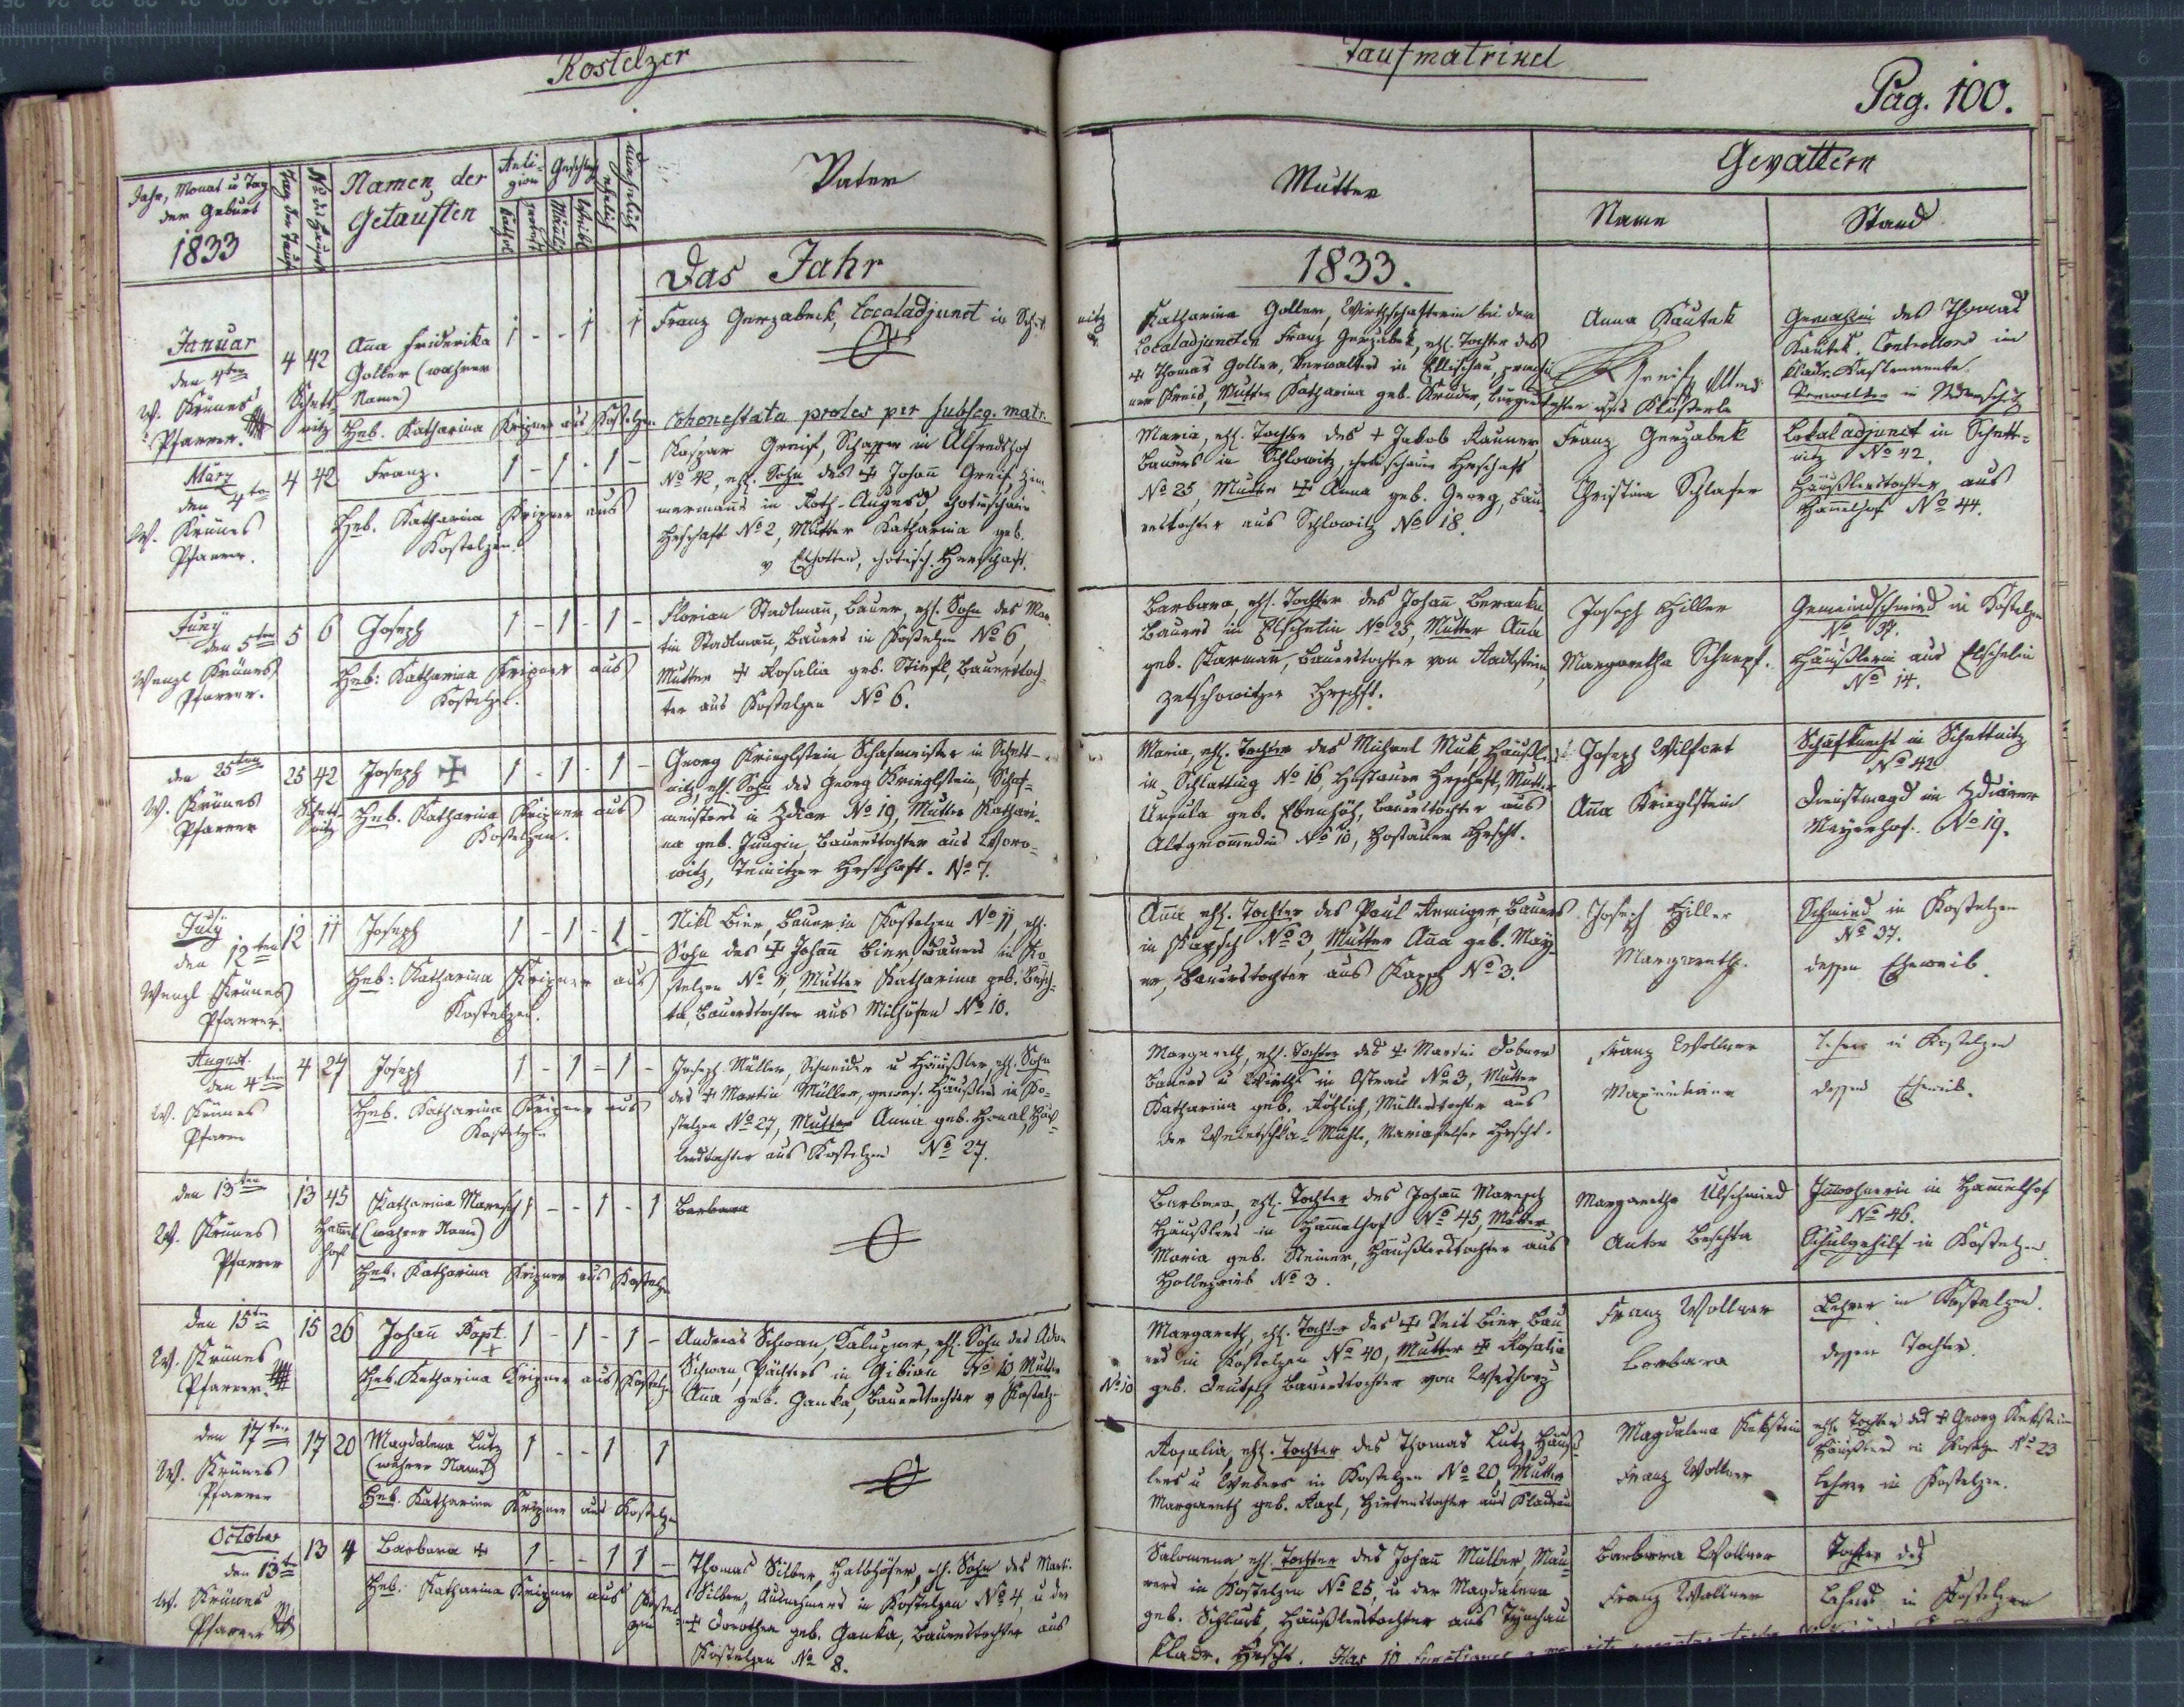 Kostelzer
Taufmatrikel
Pag. 100.
Jahr, Monat u Tag
der Geburt
1833
Tag der Taufe
No des Hauses
Namen der
Getauften
Reli-
gion
Geschlecht
Vater
Mutter
Gevattern
Name
Stand
Das Jahr
1833.
Januar
den 4ten
W. Krünes
Pfarrer.
4
42
Schett-
nitz
Aña Friderika
Goller (wahrer
Name)
Heb. Katharina Krizner aus Kostelzen
Franz Gerzabeck, Localadjunct in Schett-
nitz
Cohonestata proles per subseq. matr.
Katharina Goller, Wirthschafterin bei dem
Localadjuncten Franz Gerzabek, ehl. Tochter des
Anna Kautek
Gemahlin des Thomas
Kautek, Controllors im
März
den 4ten
W. Krünes
Pfarrer.
4
42
Franz.
Heb. Katharina Krizner aus
Kostelzen.
Kaspar Greif, Schaffer in Alfredshof
No 42, ehl. Sohn des + Johañ Greif, Zim-
mermanns in Roth-Augezd, chotieschauer
Hrschaft No 2, Mutter Katharina geb.
Maria, ehl. Tochter des + Jakob
Bauers in Schlowitz, chotieschauer Hrschaft
No 25, Mutter + Anna geb. Georg, Bau-
erstochter aus Schlowitz No 18.
Franz Gerzabek
Christina Schlafer
Lokaladjunct in Schett-
nitz No 42.
Häußlerstochter aus
Hamelhof No 44.
Juny
den 5ten
Wenzl Krünes
Pfarrer.
5
6
Joseph
Heb: Katharina Krizner aus
Kostelzen.
Florian Stadlmañ, Bauer, ehl. Sohn des Mar-
tin Stadlmañ, Bauers in Kostelzen No 6,
Mutter + Rosalia geb. Stiefl, Bauerstoch-
ter aus Kostelzen No 6.
Barbara, ehl. Tochter des Johañ Beranka
Bauers in Elschelin No 25, Mutter Aña
geb. Karman, Bauerstochter von Radlstein,
zetschowitzer Hrschft.
Joseph Hiller
Margaretha Schnepf.
Gemeindschmied in Kostelzen
No 37.
Häußlerin aus Elschelin
No 14.
den 25ten
W. Krünes
Pfarrer
25
42
Schett-
nitz
Joseph
Heb. Katharina Krizner aus
Kostelzen.
Georg Krieglstein Schafmeister in Schett-
nitz, ehl. Sohn des Georg Krieglstein, Schaf-
meisters in Zdiar No 19, Mutter Kathari-
na geb. Jungin, Bauerstochter aus Woro-
witz, Teinitzer Hrschaft. No 7.
Maria, ehl. Tochter des Michael Muk, Häußlers
in Schlattin No 16, Hostauer Hrschaft, Mutter
Ursula geb. Ebenhöh, Bauerstochter aus
No 10, Hostauer Hrscht.
Joseph Wilfert
Aña Krieglstein
Schafknecht in Schettnitz
No 42
Dienstmagd im Zdiarer
Mayerhof. No 19.
July
den 12ten
Wenzl Krünes
Pfarrer.
12
11
Joseph
Heb: Katharina Krizner aus
Kostelzen.
Nikl Bier, Bauer in Kostelzen No 11, ehl.
Sohn des + Johañ Bier, Bauers in Ko-
stelzen No 11, Mutter Katharina geb. Besch-
ta, Bauerstochter aus Milhöfen No 10.
Aña ehl. Tochter des Paul Armiger, Bauers
in Kapsch No 3, Mutter Aña geb. May-
er, Bauerstochter aus Kapsch No 3.
Joseph Hiller
Margareth.
Schmied in Kostelzen
No 37.
dessen Eheweib.
August.
den 4ten
W. Krünes
Pfarrer
4
27
Joseph
Heb. Katharina Krizner aus
Kostelzen
Joseph Müller, Schneider u Häußler, ehl. Sohn
des + Martin Müller, gewes. Häußlers in Ko-
stelzen No 27, Mutter Anna geb. Honal, Häuß-
lerstochter aus Kostelzen No 27.
Margareth, ehl. Tochter des + Martin Dobner
Bauers u Wirths in Ostrau No 3, Mutter
Katharina geb. Fröhlich, Müllerstochter aus
Franz Wollner
Maximiliana
Lehrer in Kostelzen
dessen Eheweib.
den 13ten
W. Krünes
Pfarrer
13
45
Hamel-
hof
Katharina Maresch
(wahrer Name)
Heb. Katharina Krizner aus Kostelzen
Barbara
Barbara, ehl. Tochter des Johañ Maresch
Häußlers in Hamelhof No 45, Mutter
Maria geb. Steiner, Häußlerstochter aus
Hollezrieb No 3.
Margaretha Ulschmied
Anton Beschta
Inwohnerin in Hamelhof
No 46.
Schulgehilf in Kostelzen
den 15ten
W. Krünes
Pfarrer.
15
26
Johañ Bapt.
Heb. Katharina Krizner aus Kostelzen
Andreas Schwan, Kaluper, ehl. Sohn des Adam
Schwan, Pächters in Gibian No 10, Mutter
Aña geb. Ganka, Bauerstochter v Kostelzen
No 10
Margareth, ehl. Tochter des + Veit Bier, Bau-
ers in Kostelzen No 40, Mutter + Rosalia
geb. Deutsch Bauerstochter von Wescherz
Franz Wollner
Barbara
Lehrer in Kostelzen.
dessen Tochter.
den 17ten
W. Krünes
Pfarrer
17
20
Magdalena Lutz
(wahrer Name)
Heb. Katharina Krizner aus Kostelzen
Rosalia, ehl. Tochter des Thomas Lutz, Häuß-
lers u Webers in Kostelzen No 20, Mutter
Margareth geb. Rapl, Hirtenstochter aus Kladrau
Magdalena
Franz Wollner
ehl. Tochter des + Georg
Häußlers in Kostelzen No 23
Lehrer in Kostelzen.
October
den 13t
W. Krünes
Pfarrer
13
4
Barbara +
Heb. Katharina Krizner aus Kostel-
zen
Thomas Silber, Halbhöfer, ehl. Sohn des Marti.
Silber, Ausnehmers in Kostelzen No 4, u der
+ Dorothea geb. Ganka, Bauerstochter aus
Kostelzen No 8.
Salomena ehl. Tochter des Johañ Müller, Mau-
rers in Kostelzen No 25, u der Magdalena
geb. Schluck, Häußlerstochter aus Tynchau
Kladr. Hrscht.
Barbara Wollner
Franz Wollner
Tochter des
Lehrers in Kostelzen